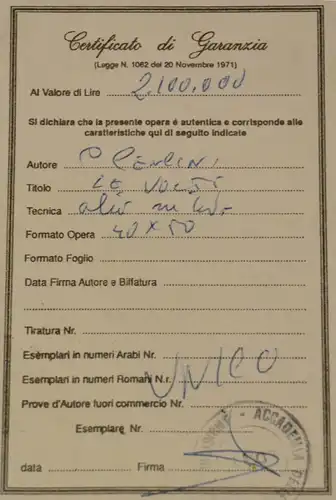 Certificato di Garanzia
(Legge N. 1062 del 20 Novembre 1971)
Al Valore di Lire 2.100.000
Si dichiara che la presente opera é autentica e corrisponde alle
caratteristiche qui di seguito indicate
Autore
Titolo LE
Tecnica olio su
Formato Opera 40x50
Formato Foglio
Data Firma Autore e Biffatura
Tiratura Nr.
Esèmplari in numeri Arabi Nr.
Esemplari in numeri Romani N.r.
UNICO
Prove d'Autore fuori commercio Nr.
Esemplare Nr.
ACCADEMIA
data Firma